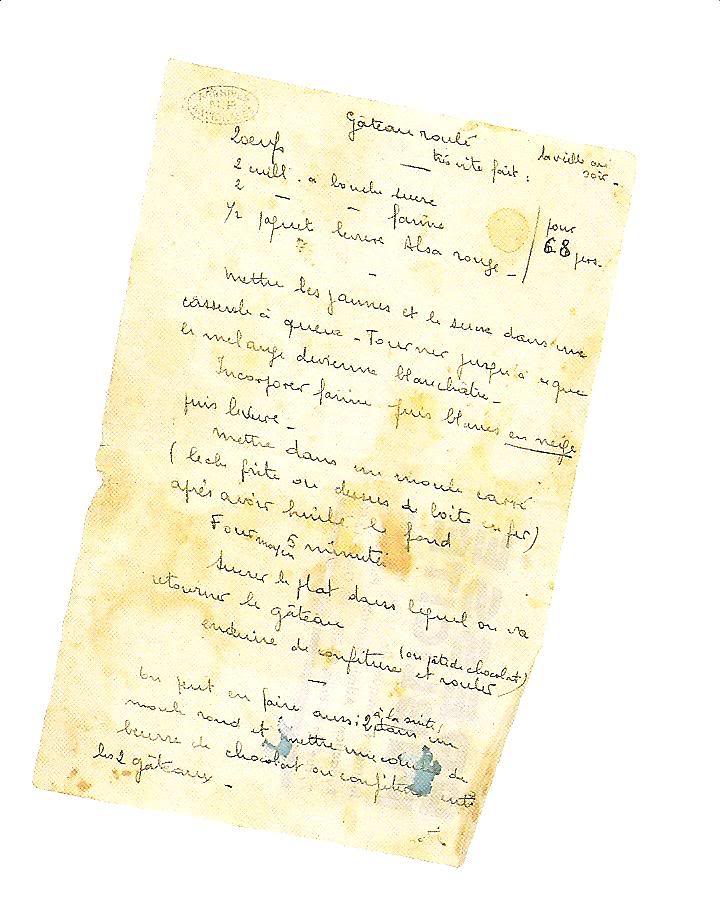 Gâteau roulé
très vite fait :
la veille au
soir -
2 oeufs
2 cuill. à bouche sucre
2 — - farine
1/2 paquet levure Alsa rouge -
pour
68 pers.
Mettre les jaunes et le sucre dans une
casserole à queue - Tourner jusqu'à ce que
le mélange devienne blanchâtre -
Incorporer farine puis blancs en neige
puis levure -
Mettre dans un moule carré
(lèche frite ou dessus de boîte en fer)
après avoir huilé le fond
Four moyen 5 minutes
Sucrer le plat dans lequel on va
retourner le gâteau
enduire de confiture et rouler
(ou pâte de chocolat)
On peut en faire aussi 2 dans un
à la suite
moule rond et mettre une couche de
beurre de chocolat ou confiture entre
les 2 gâteaux -